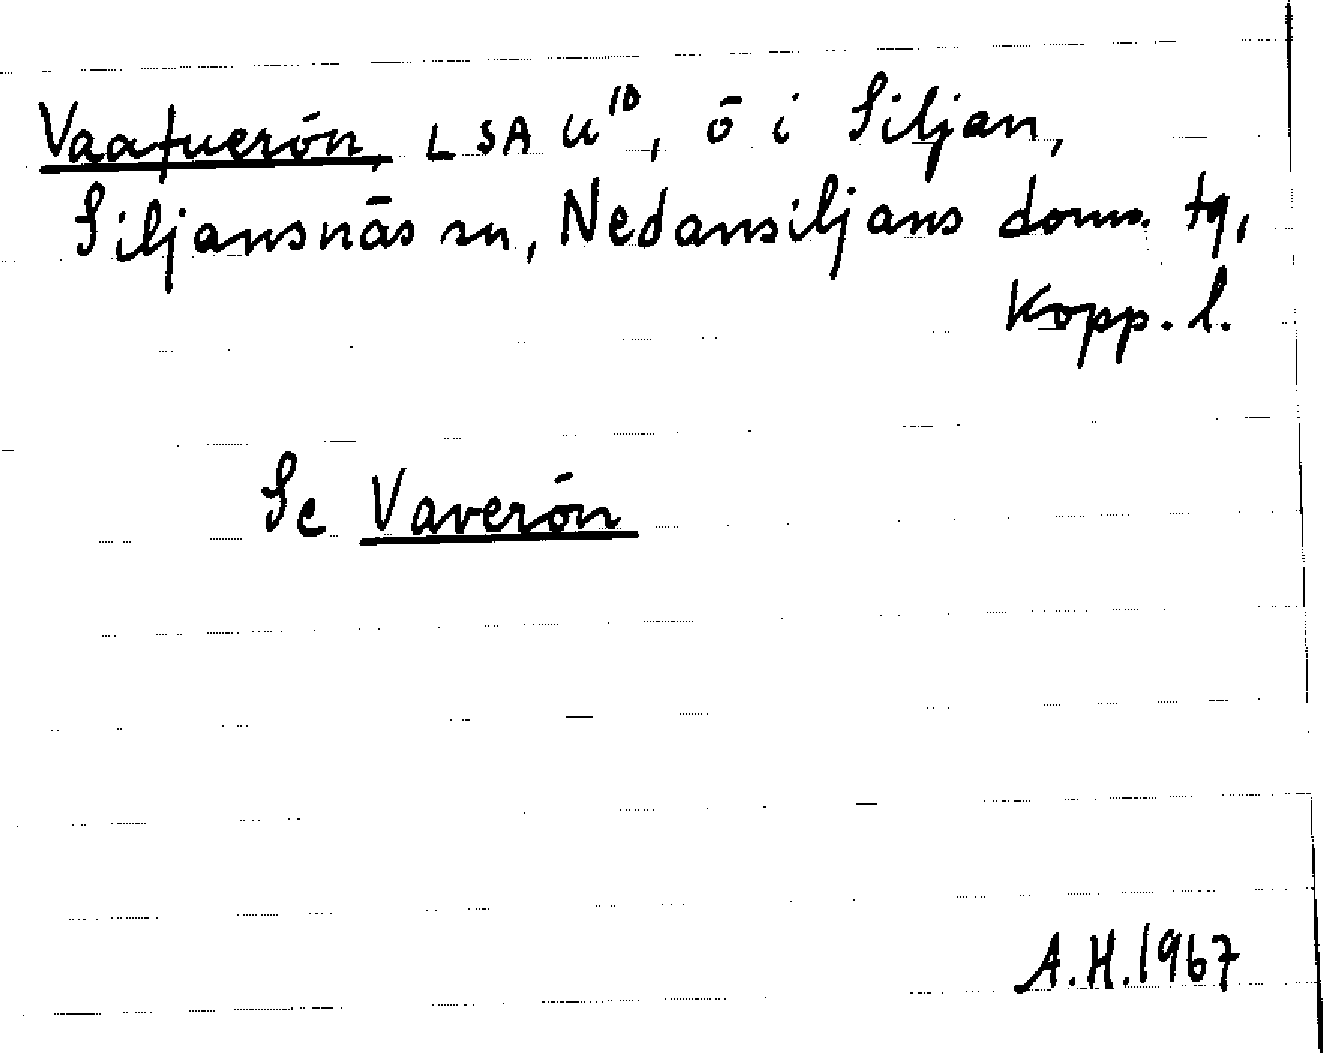 Vaafuerön, LSA U¹⁰, ö i Siljan,
Siljansnäs sn, Nedansiljans doms. tg,
Kopp. l.
Se Vaverön
A.H.1967